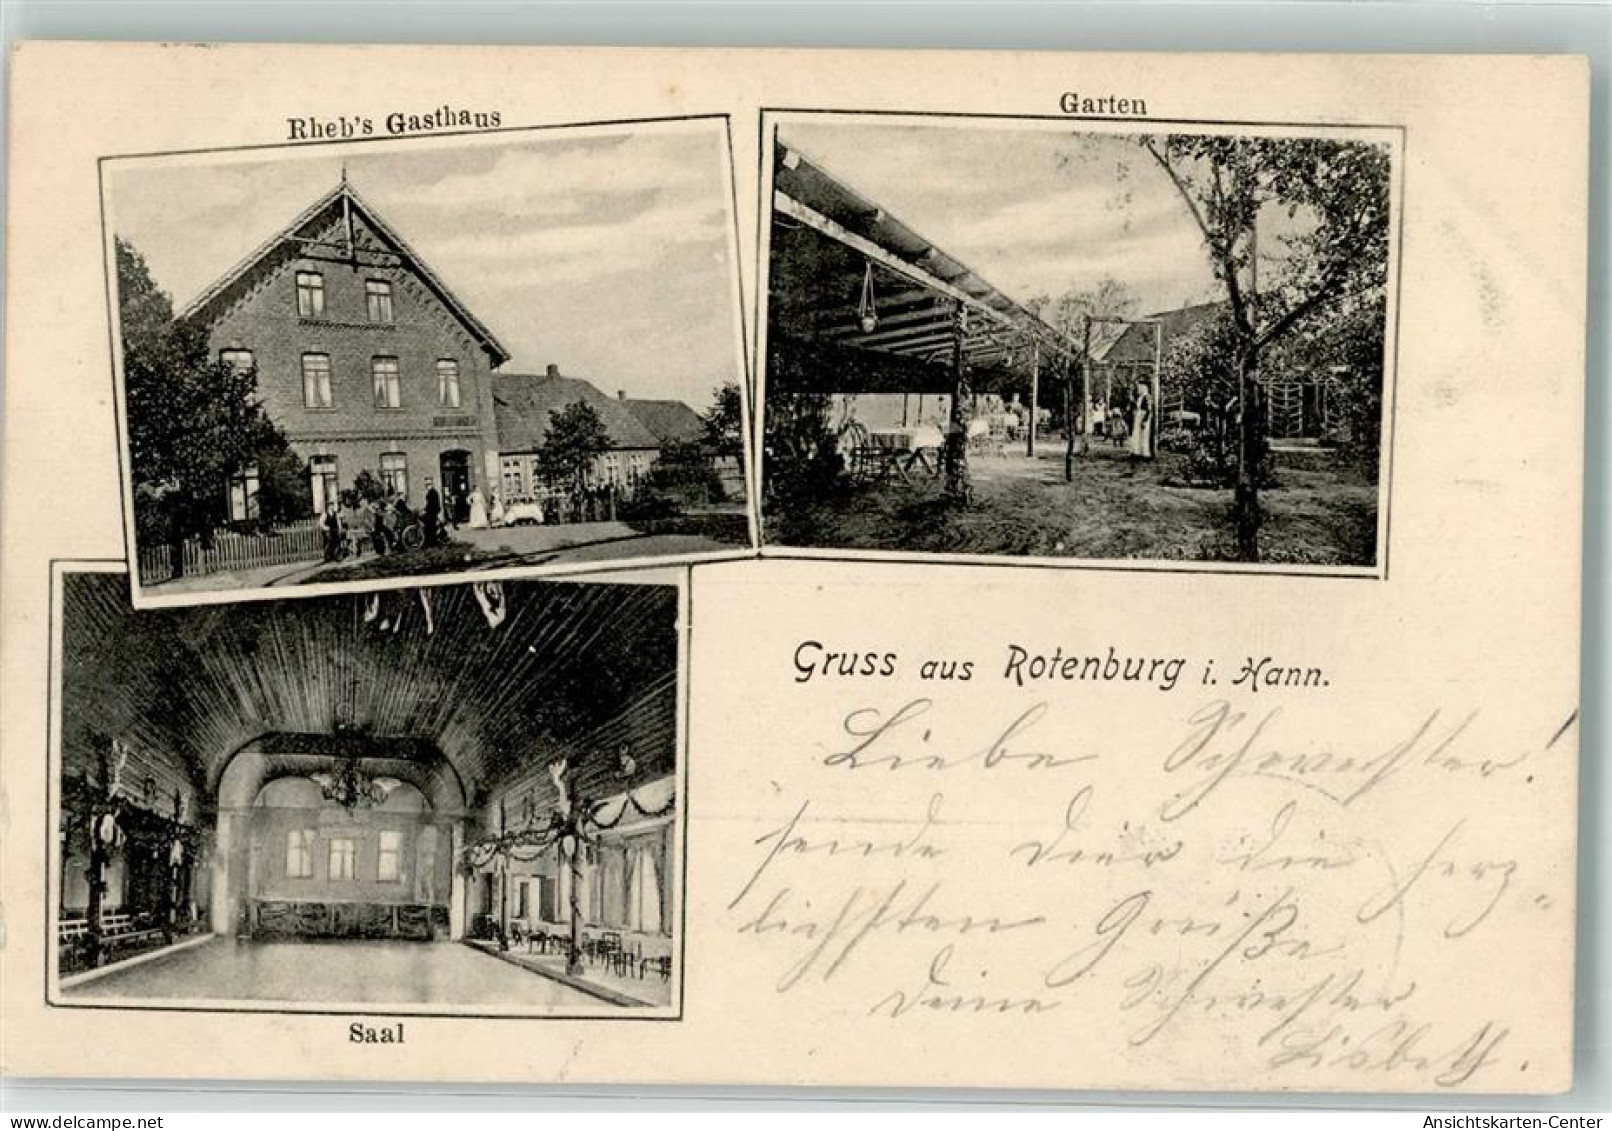 Rheb's Gasthaus
Garten
Saal
Gruss aus Rotenburg i. Hann.
Liebe Schwester!
sende Dier die herz-
lichsten Grüße
Deine Schwester
Lisbeth.
Ansichtskarten-Center